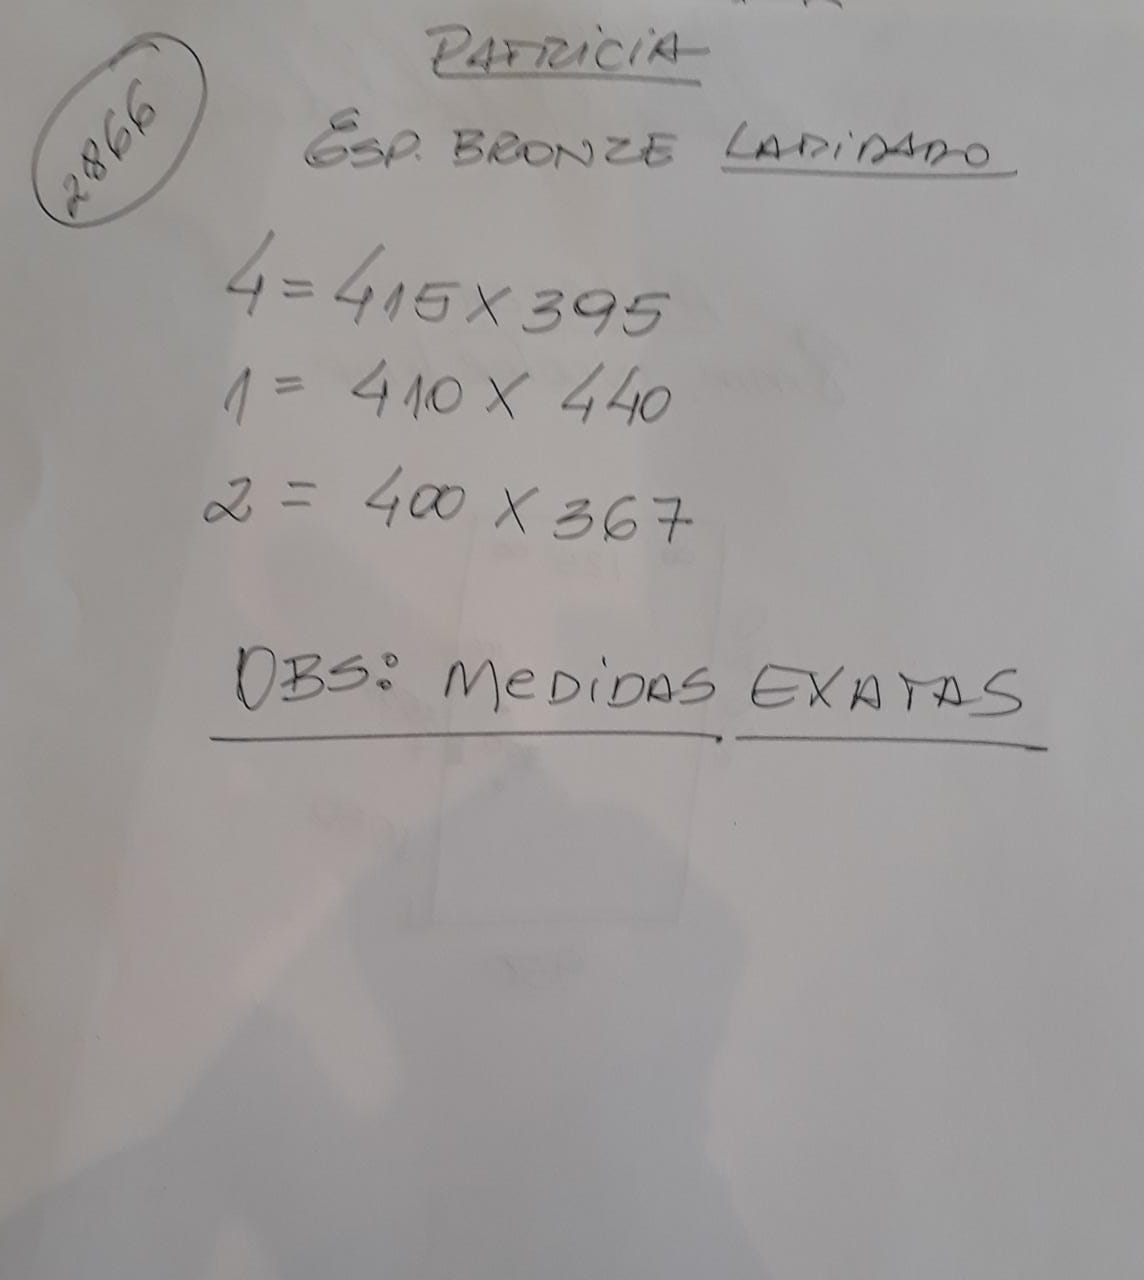 PATRICIA
2866
ESP. BRONZE LAPIDADO
4 = 415 X 395
1 = 410 X 440
2 = 400 X 367
OBS: MEDIDAS EXATAS